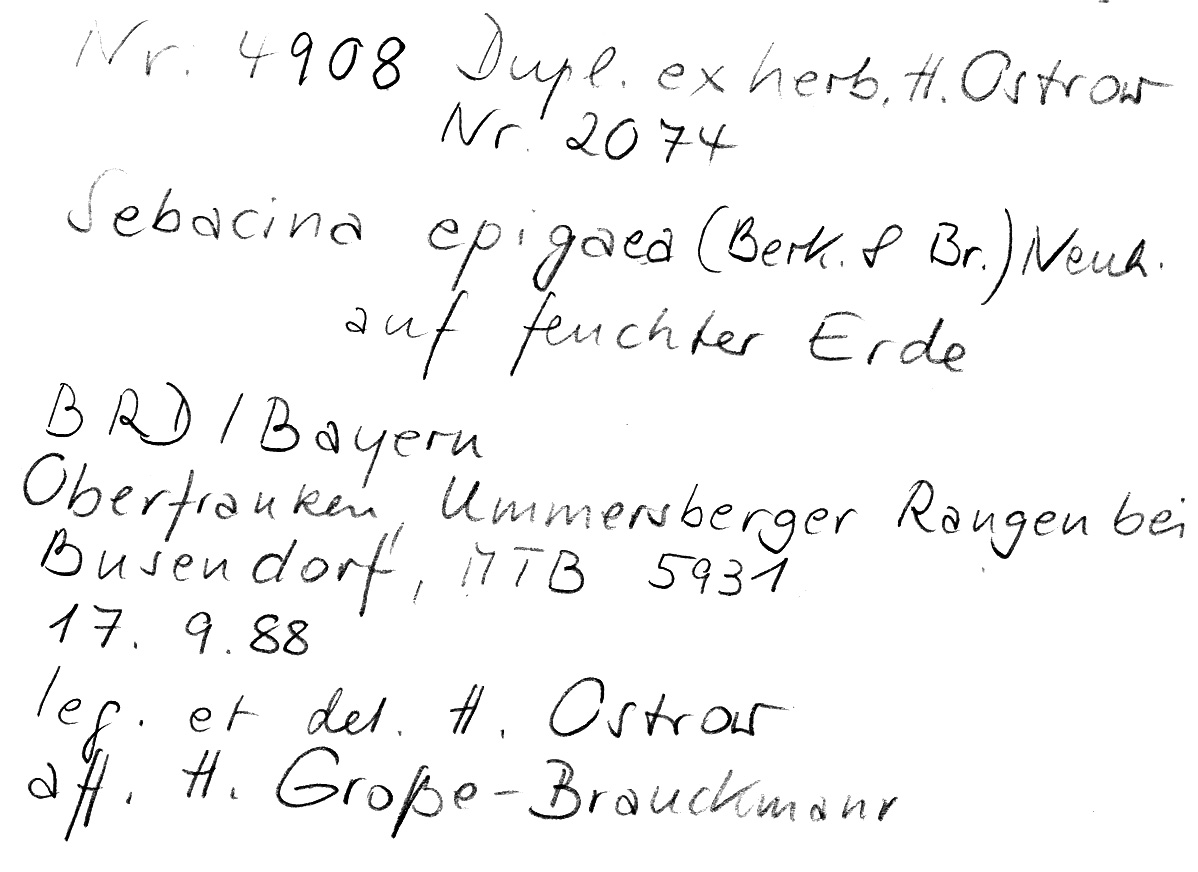 Nr. 4908 Dupl. ex herb. H. Ostrow
Nr. 2074
Sebacina epigaea (Berk. & Br.) Neuh.
auf feuchter Erde
BRD / Bayern
Oberfranken, Ummersberger Rangen bei
Busendorf, MTB 5931
17. 9. 88
leg. et det. H. Ostrow
aff. H. Große-Brauckmann